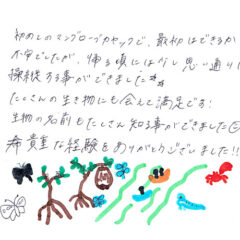 初めてのマングローブカヤックで、最初はできるか
不安でしたが、帰る頃には少し思い通りに
操縦する事ができました**
たくさんの生き物にも会えて満足です!
生物の名前もたくさん知る事ができました☺
希貴な経験をありがとうございました!!